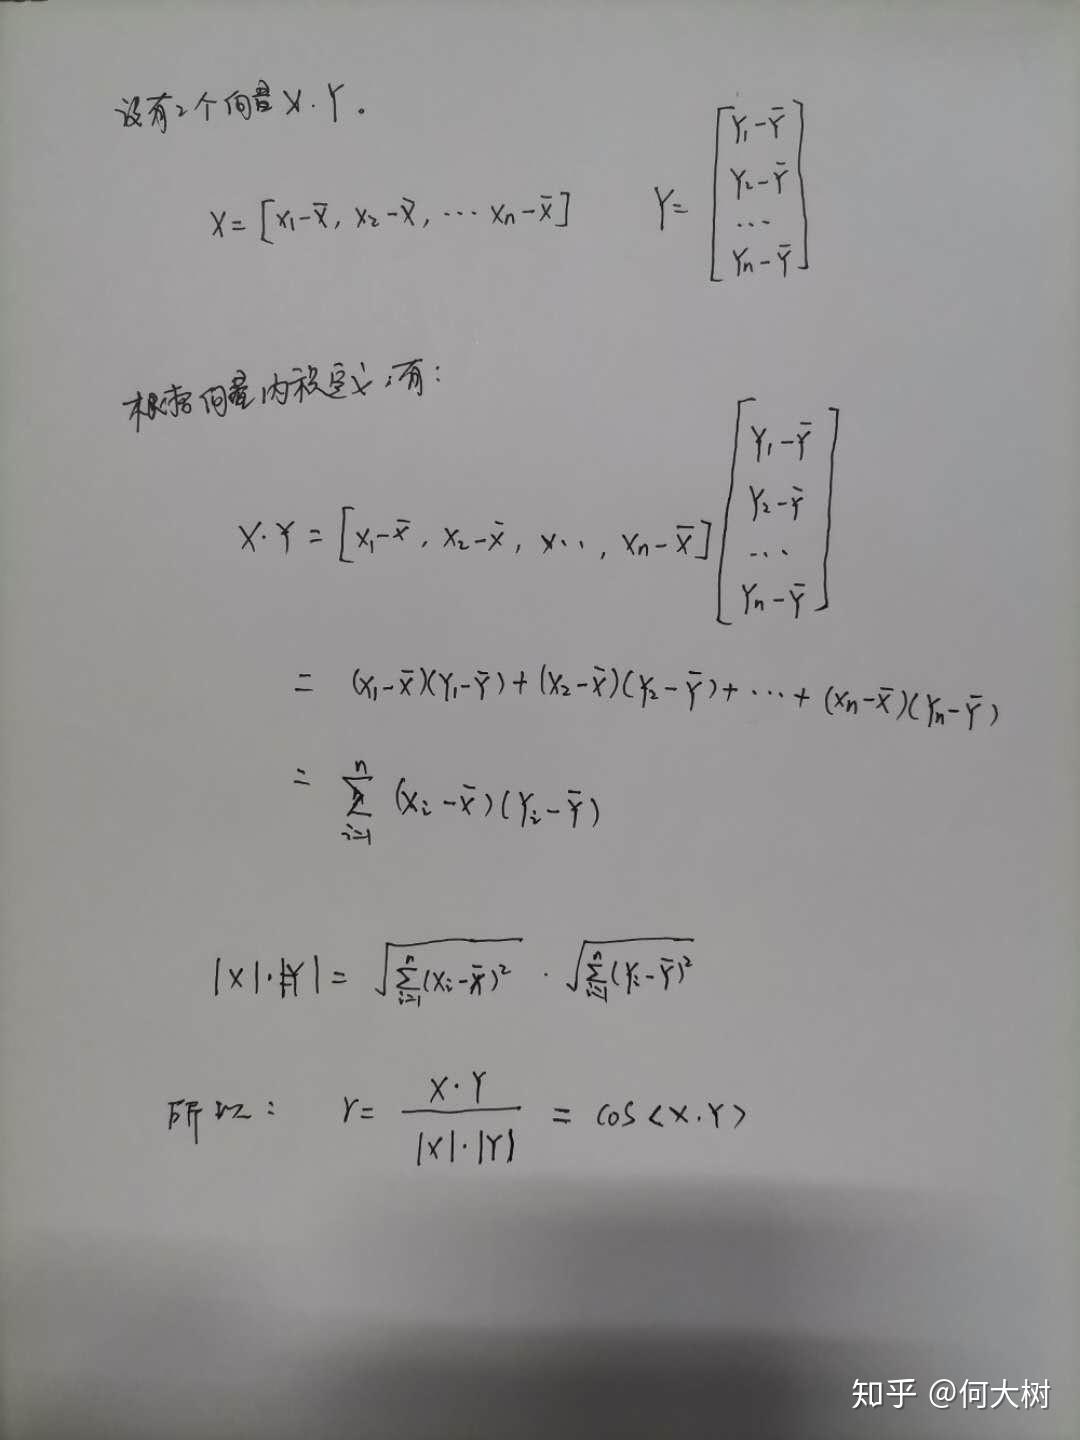 设有2个向量X.Y。
X=[x₁-X̄, x₂-X̄, ⋯ xₙ-X̄] Y=[Y₁-Ȳ Y₂-Ȳ ⋯ Yₙ-Ȳ]
根据向量内积定义,有:
X·Y=[x₁-X̄, x₂-X̄, x⋯, xₙ-X̄][Y₁-Ȳ Y₂-Ȳ ⋯ Yₙ-Ȳ]
= (x₁-X̄)(Y₁-Ȳ)+(x₂-X̄)(Y₂-Ȳ)+⋯+(xₙ-X̄)(Yₙ-Ȳ)
= ∑ⁿᵢ₌₁ (xᵢ-X̄)(Yᵢ-Ȳ)
|X|·|Y|= √(∑ⁿᵢ₌₁(xᵢ-X̄)²) · √(∑ⁿᵢ₌₁(Yᵢ-Ȳ)²)
所以: r= X·Y / |X|·|Y| = cos<X.Y>
知乎 @何大树